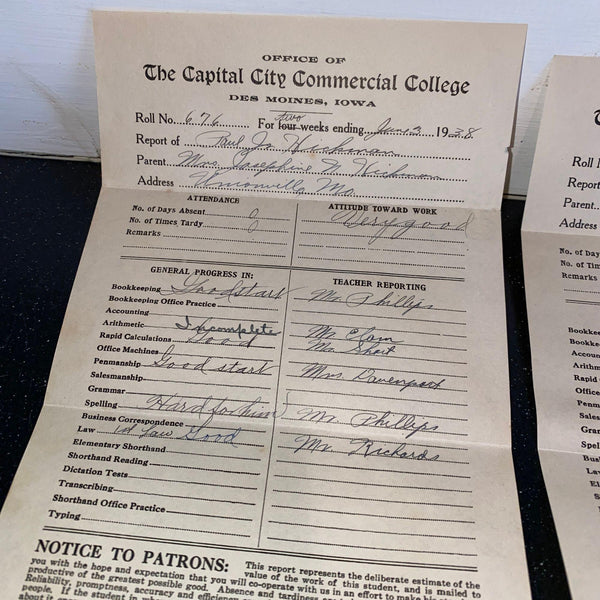 OFFICE OF
The Capital City Commercial College
DES MOINES, IOWA
Roll No. 676 For four two weeks ending June 3 1938
Report of Paul Jr. Hickman
Parent Mrs. Josephine N Hickman
Address Unionville Mo.
ATTENDANCE
No. of Days Absent 0
No. of Times Tardy
Remarks
ATTITUDE TOWARD WORK
Very good
GENERAL PROGRESS IN: TEACHER REPORTING
Bookkeeping Good start Mr. Phillips
Bookkeeping Office Practice
Accounting
Arithmetic Incomplete Mr. Elam
Rapid Calculations Good Mr. Short
Office Machines
Penmanship Good start Mrs. Davenport
Salesmanship
Grammar
Spelling Hard for him Mr. Phillips
Business Correspondence
Law 1st Law Good Mr. Richards
Elementary Shorthand
Shorthand Reading
Dictation Tests
Transcribing
Shorthand Office Practice
Typing
NOTICE TO PATRONS: This report represents the deliberate estimate of the
value of the work of this student, and is mailed to
you with the hope and expectation that you will co-operate with us in an effort to make
productive of the greatest possible good. Absence and tardiness
Reliability, promptness, accuracy and efficiency
people. If the student
about it
Roll
Report
Parent
Address
No. of Days
No. of Tim
Remarks